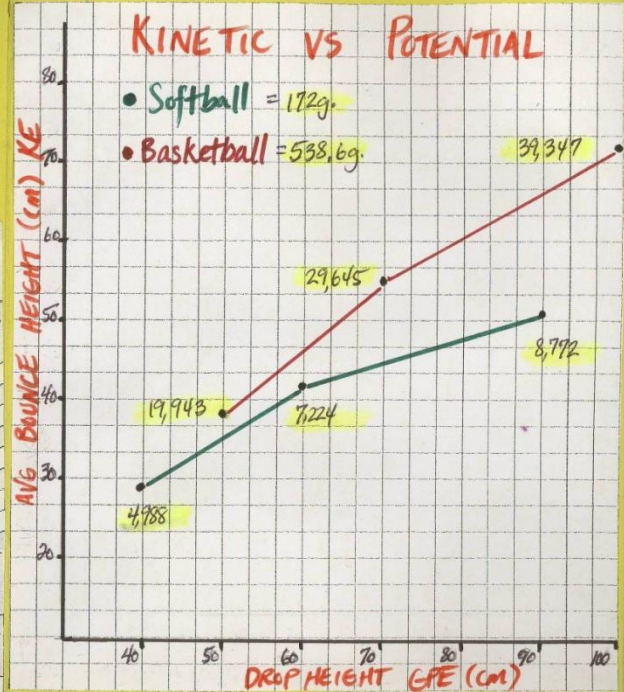 KINETIC VS POTENTIAL
• Softball = 172g.
• Basketball = 538.6g.
AVG BOUNCE HEIGHT (cm) KE
80
70
60
50
40
30
20
39,347
29,645
8,772
19,943
7,224
4,988
40 50 60 70 80 90 100
DROP HEIGHT GPE (cm)